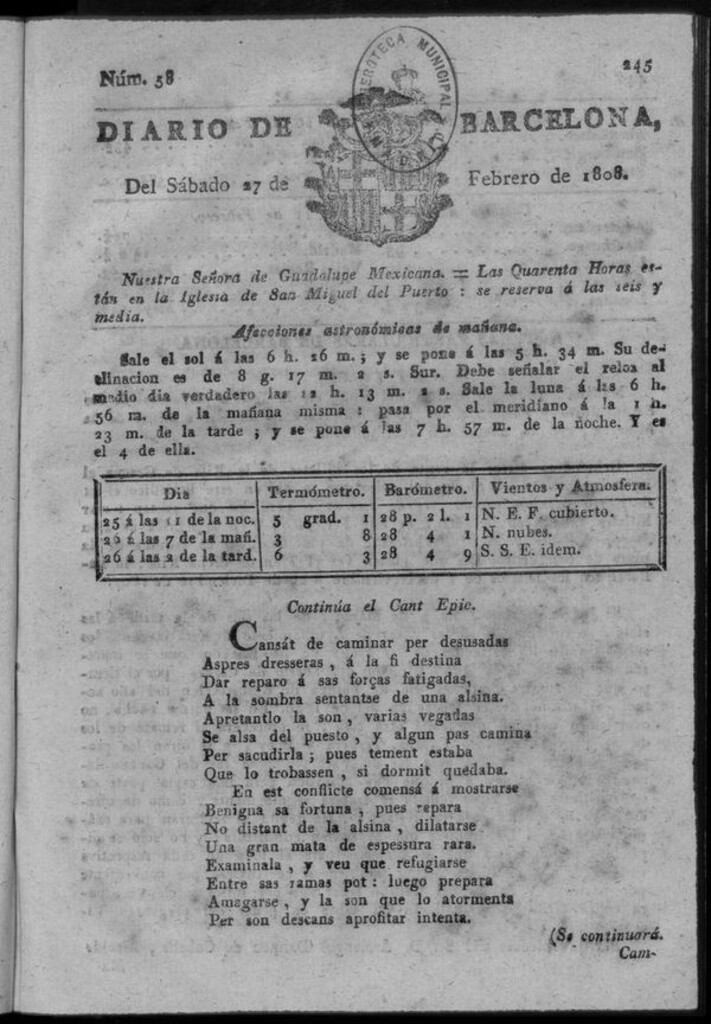 Núm. 58
245
HEMEROTECA MUNICIPAL
MADRID
DIARIO DE BARCELONA,
Del Sábado 27 de Febrero de 1808.
Nuestra Señora de Guadalupe Mexicana. = Las Quarenta Horas es-
tán en la Iglesia de San Miguel del Puerto : se reserva á las seis y
media.
Afecciones astronómicas de mañana.
Sale el sol á las 6 h. 26 m. ; y se pone á las 5 h. 34 m. Su de-
clinacion es de 8 g. 17 m. 2 s. Sur. Debe señalar el relox al
medio dia verdadero las 12 h. 13 m. 2 s. Sale la luna á las 6 h.
56 m. de la mañana misma : pasa por el meridiano á la 1 h.
23 m. de la tarde ; y se pone á las 7 h. 57 m. de la noche. Y es
el 4 de ella.
Dia Termómetro. Barómetro. Vientos y Atmosfera.
25 á las 11 de la noc. 5 grad. 1 28 p. 2 l. 1 N. E. F. cubierto.
26 á las 7 de la mañ. 3 8 28 4 1 N. nubes.
26 á las 2 de la tard. 6 3 28 4 9 S. S. E. idem.
Continúa el Cant Epic.
Cansát de caminar per desusadas
Aspres dresseras , á la fi destina
Dar reparo á sas forças fatigadas,
A la sombra sentantse de una alsina.
Apretantlo la son , varias vegadas
Se alsa del puesto , y algun pas camina
Per sacudirla ; pues tement estaba
Que lo trobassen , si dormit quedaba.
En est conflicte comensá á mostrarse
Benigna sa fortuna , pues repara
No distant de la alsina , dilatarse
Una gran mata de espessura rara.
Examinala , y veu que refugiarse
Entre sas ramas pot : luego prepara
Amagarse , y la son que lo atormenta
Per son descans aprofitar intenta.
(Se continuará.
Cam-